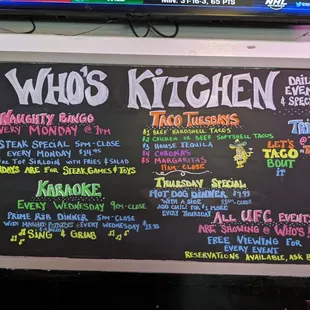 MIN: 31-16-3, 65 PTS
NHL
WHO'S KITCHEN
DAILY
EVENTS
& SPECI
NAUGHTY BINGO
EVERY MONDAY @ 7PM
STEAK SPECIAL 5PM-CLOSE
EVERY MONDAY $14.95
TOP SIRLOIN, WITH FRIES & SALAD
MONDAYS ARE FOR STEAK, GAMES & TOYS
KARAOKE
EVERY WEDNESDAY 9PM-CLOSE
PRIME RIB DINNER 5PM-CLOSE
EVERY WEDNESDAY
SING & GRUB
TACO TUESDAYS
$1 BEEF HARDSHELL TACOS
$2 CHICKEN OR BEEF SOFTSHELL TACOS
$3 HOUSE TEQUILA
$4 CORONAS
$5 MARGARITAS
11AM-CLOSE
LET'S
TACO
BOUT
IT
THURSDAY SPECIAL
HOT DOG DINNER $7.95
WITH A SIDE
ADD CHILI FOR $1 MORE
EVERY THURSDAY
ALL UFC EVENTS
ARE SHOWING @ WHO'S
FREE VIEWING FOR
EVERY EVENT
RESERVATIONS AVAILABLE, ASK